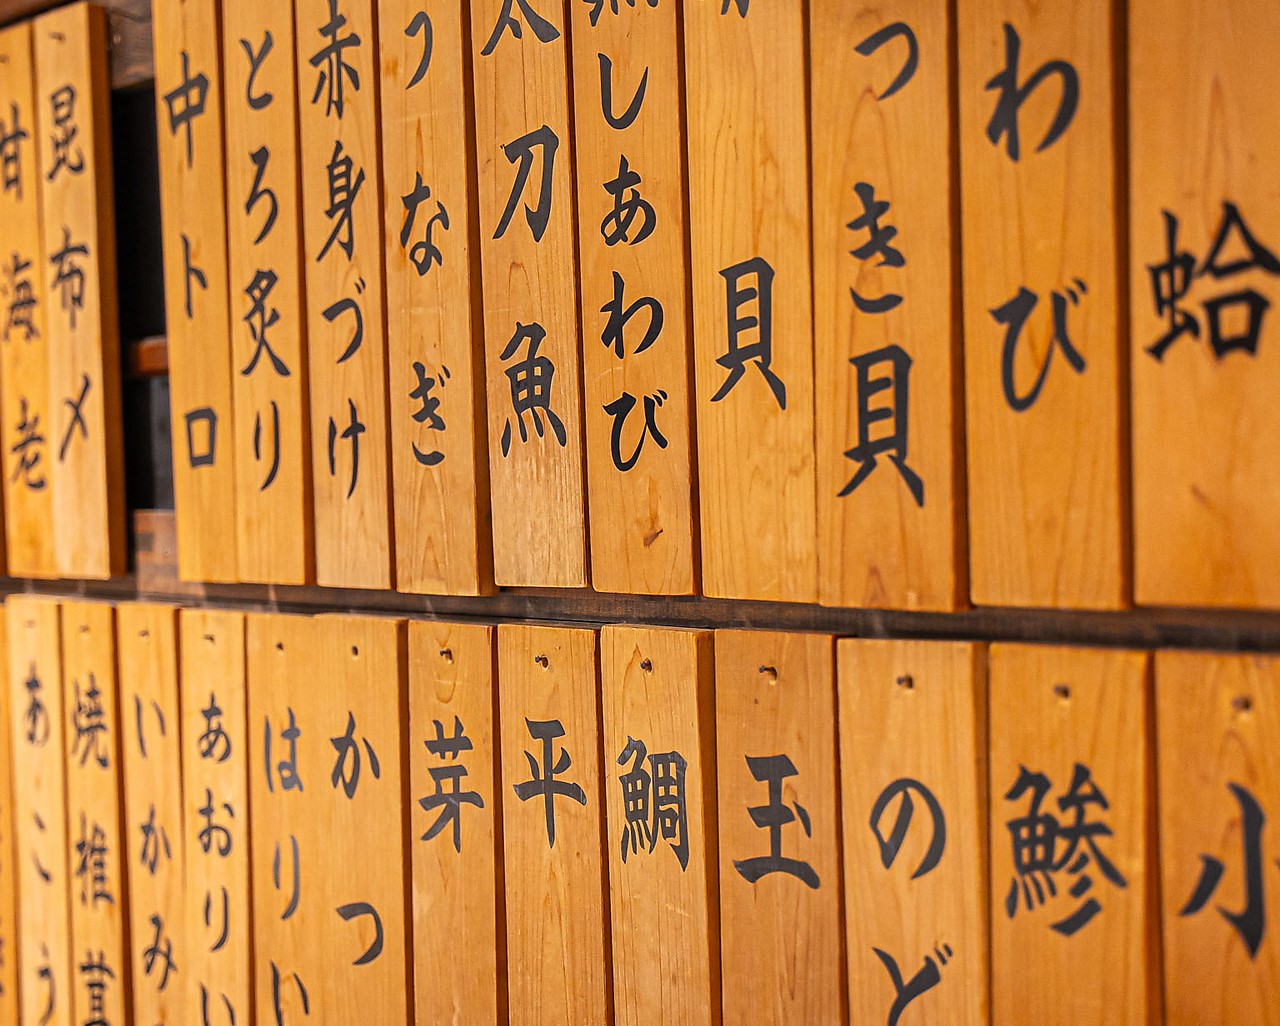 蛤
わび
つき貝
貝
しあわび
太刀魚
つなぎ
赤身づけ
とろ炙り
中トロ
昆布〆
甘海老
小
鯵
のど
玉
鯛
平
芽
かつ
はりい
あおりい
いかみ
焼椎茸
あこう